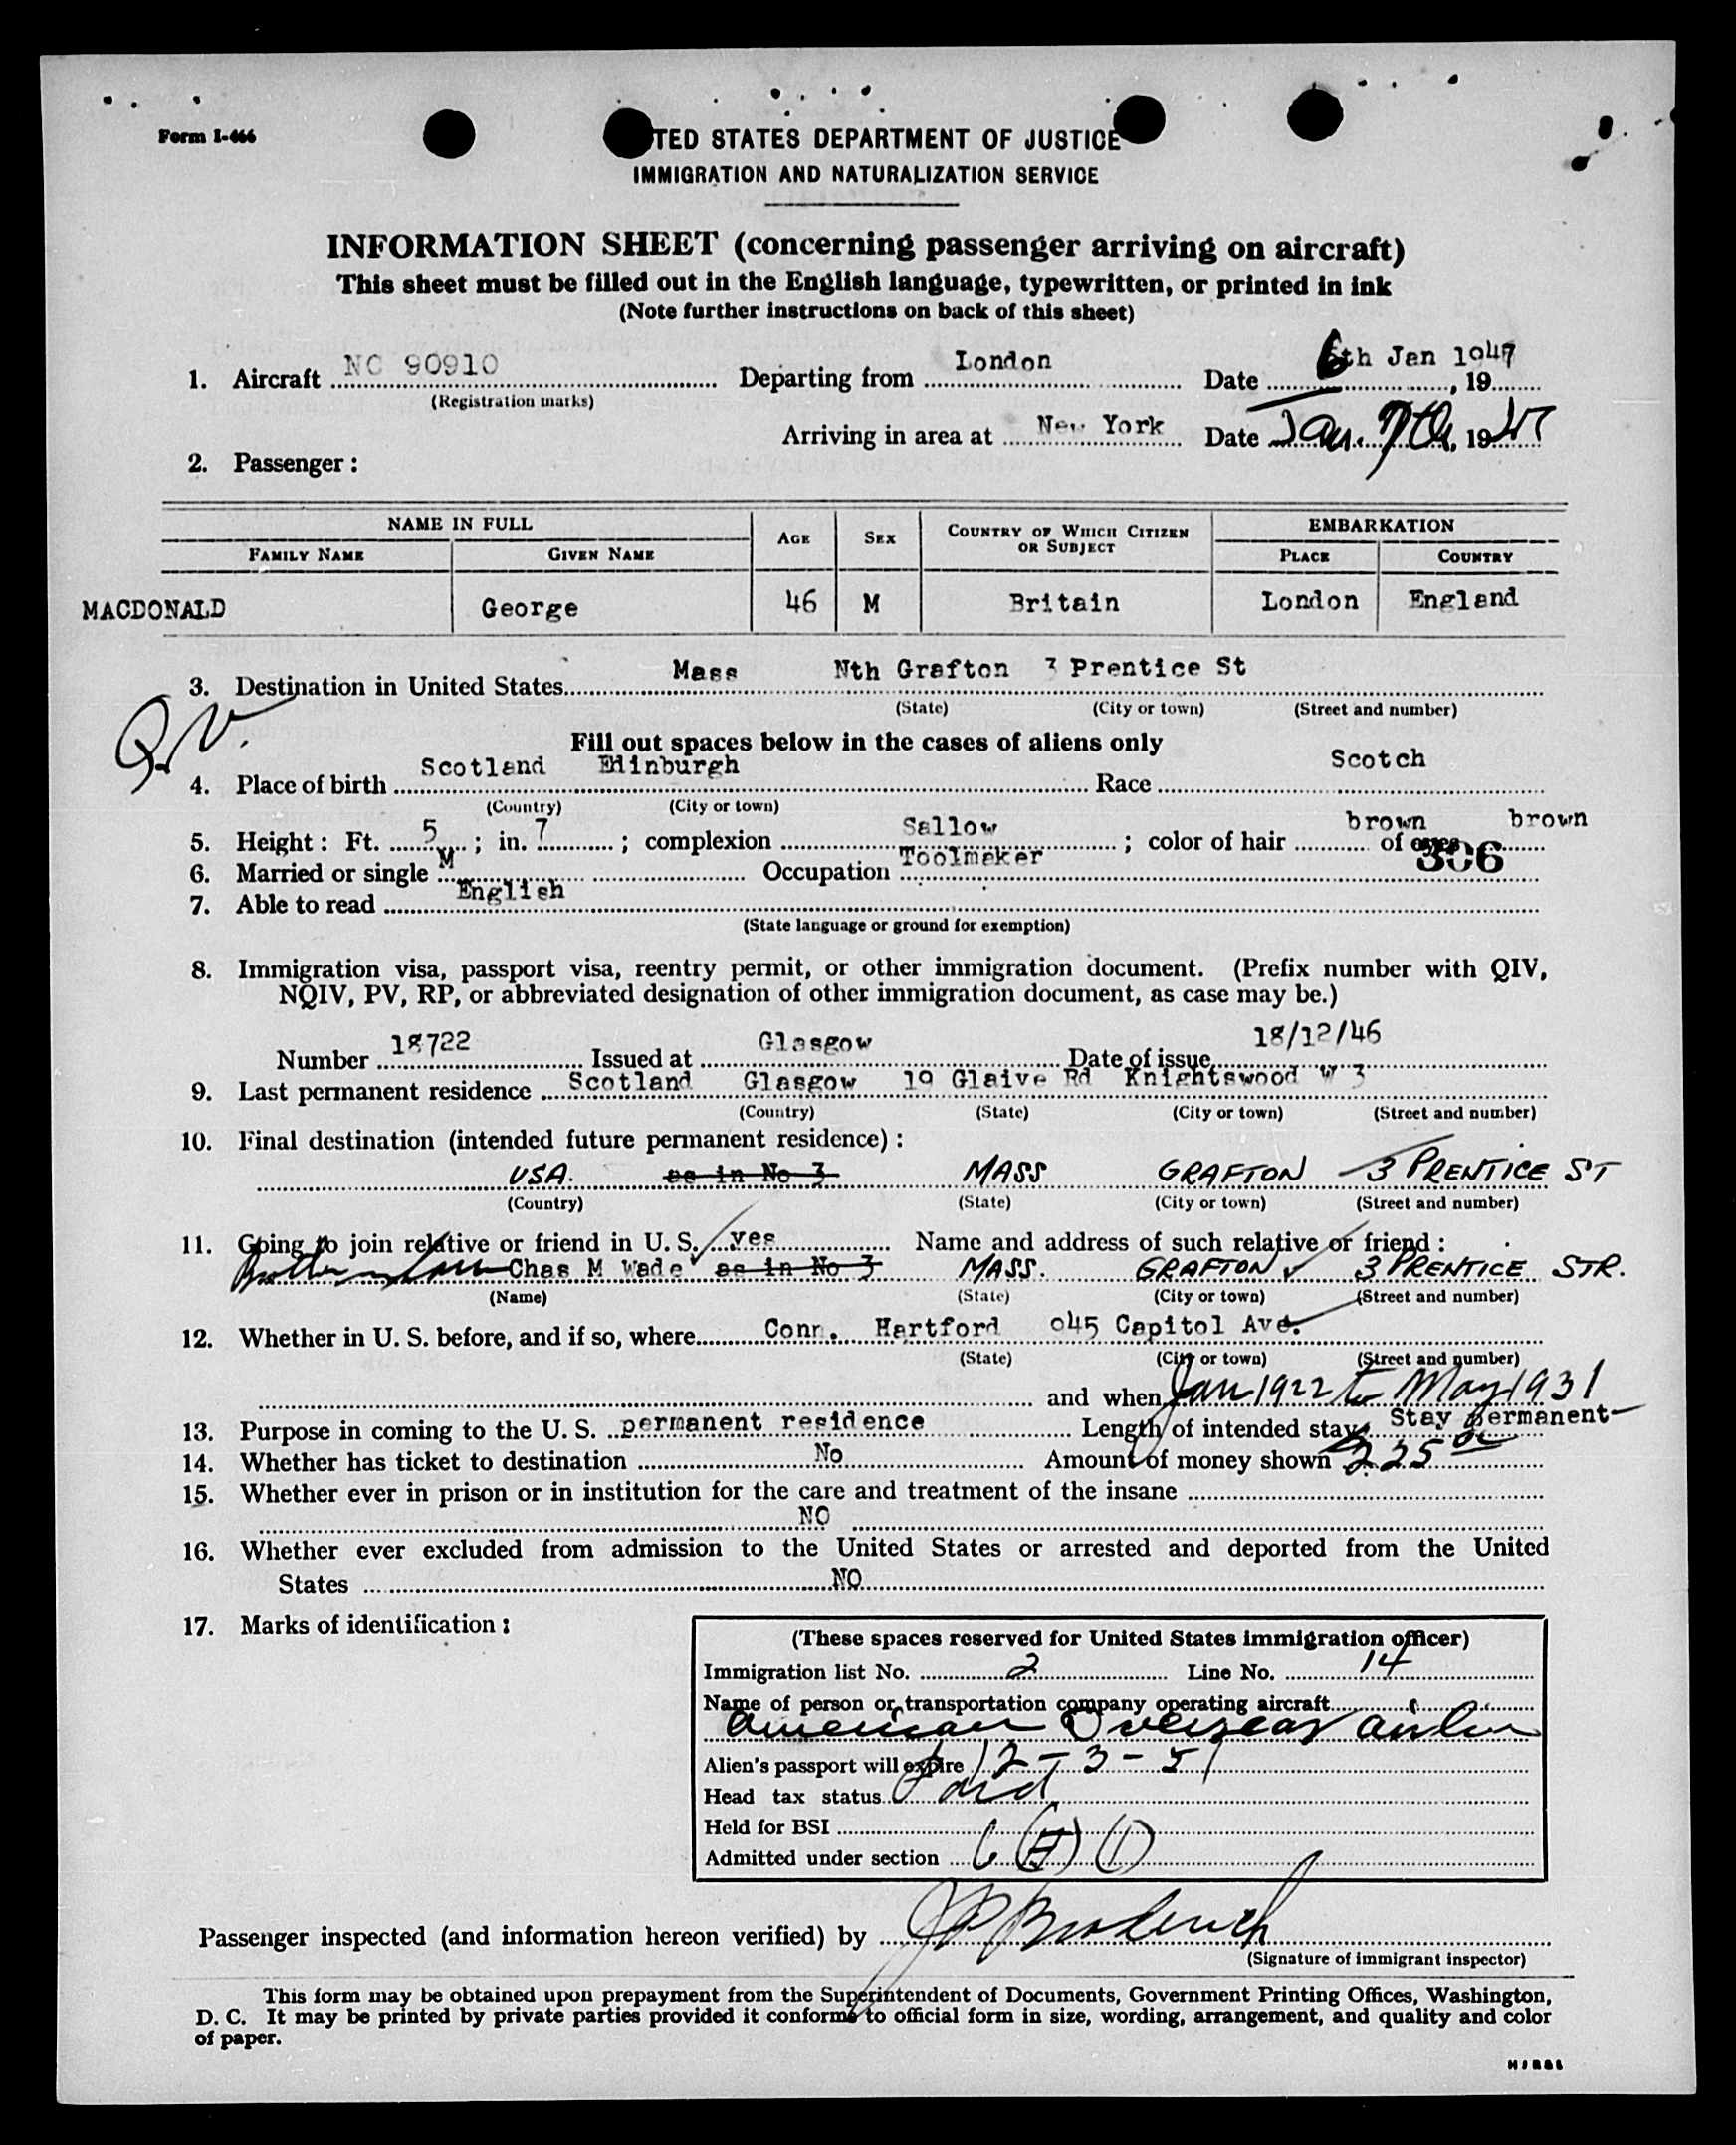 Form I-466
TED STATES DEPARTMENT OF JUSTICE
IMMIGRATION AND NATURALIZATION SERVICE
INFORMATION SHEET (concerning passenger arriving on aircraft)
This sheet must be filled out in the English language, typewritten, or printed in ink
(Note further instructions on back of this sheet)
1. Aircraft NC 90910 Departing from London Date 6th Jan 1947, 19
(Registration marks)
Arriving in area at New York Date Jan. 7th, 1947
2. Passenger:
NAME IN FULL AGE SEX COUNTRY OF WHICH CITIZEN OR SUBJECT EMBARKATION
FAMILY NAME GIVEN NAME PLACE COUNTRY
MACDONALD George 46 M Britain London England
3. Destination in United States Mass Nth Grafton 3 Prentice St
(State) (City or town) (Street and number)
Fill out spaces below in the cases of aliens only
4. Place of birth Scotland Edinburgh Race Scotch
(Country) (City or town)
5. Height: Ft. 5; in. 7; complexion Sallow; color of hair brown of eyes brown
306
6. Married or single M Occupation Toolmaker
7. Able to read English
(State language or ground for exemption)
8. Immigration visa, passport visa, reentry permit, or other immigration document. (Prefix number with QIV,
NQIV, PV, RP, or abbreviated designation of other immigration document, as case may be.)
Number 18722 Issued at Glasgow Date of issue 18/12/46
9. Last permanent residence Scotland Glasgow 19 Glaive Rd Knightswood W 3
(Country) (State) (City or town) (Street and number)
10. Final destination (intended future permanent residence):
USA. as in No 3 MASS GRAFTON 3 PRENTICE ST
(Country) (State) (City or town) (Street and number)
11. Going to join relative or friend in U. S. yes Name and address of such relative or friend:
Brother in law Chas M Wade as in No 3 MASS. GRAFTON 3 PRENTICE STR.
(Name) (State) (City or town) (Street and number)
12. Whether in U. S. before, and if so, where Conn. Hartford 945 Capitol Ave.
(State) (City or town) (Street and number)
and when Jan 1922 to May 1931
13. Purpose in coming to the U. S. permanent residence Length of intended stay Stay permanent
14. Whether has ticket to destination No Amount of money shown 225 00
15. Whether ever in prison or in institution for the care and treatment of the insane
NO
16. Whether ever excluded from admission to the United States or arrested and deported from the United
States NO
17. Marks of identification:
(These spaces reserved for United States immigration officer)
Immigration list No. 2 Line No. 14
Name of person or transportation company operating aircraft
American Overseas Airlines
Alien's passport will expire 12-3-51
Head tax status Paid
Held for BSI
Admitted under section 6 (A) (1)
Passenger inspected (and information hereon verified) by
(Signature of immigrant inspector)
This form may be obtained upon prepayment from the Superintendent of Documents, Government Printing Offices, Washington,
D. C. It may be printed by private parties provided it conforms to official form in size, wording, arrangement, and quality and color
of paper.